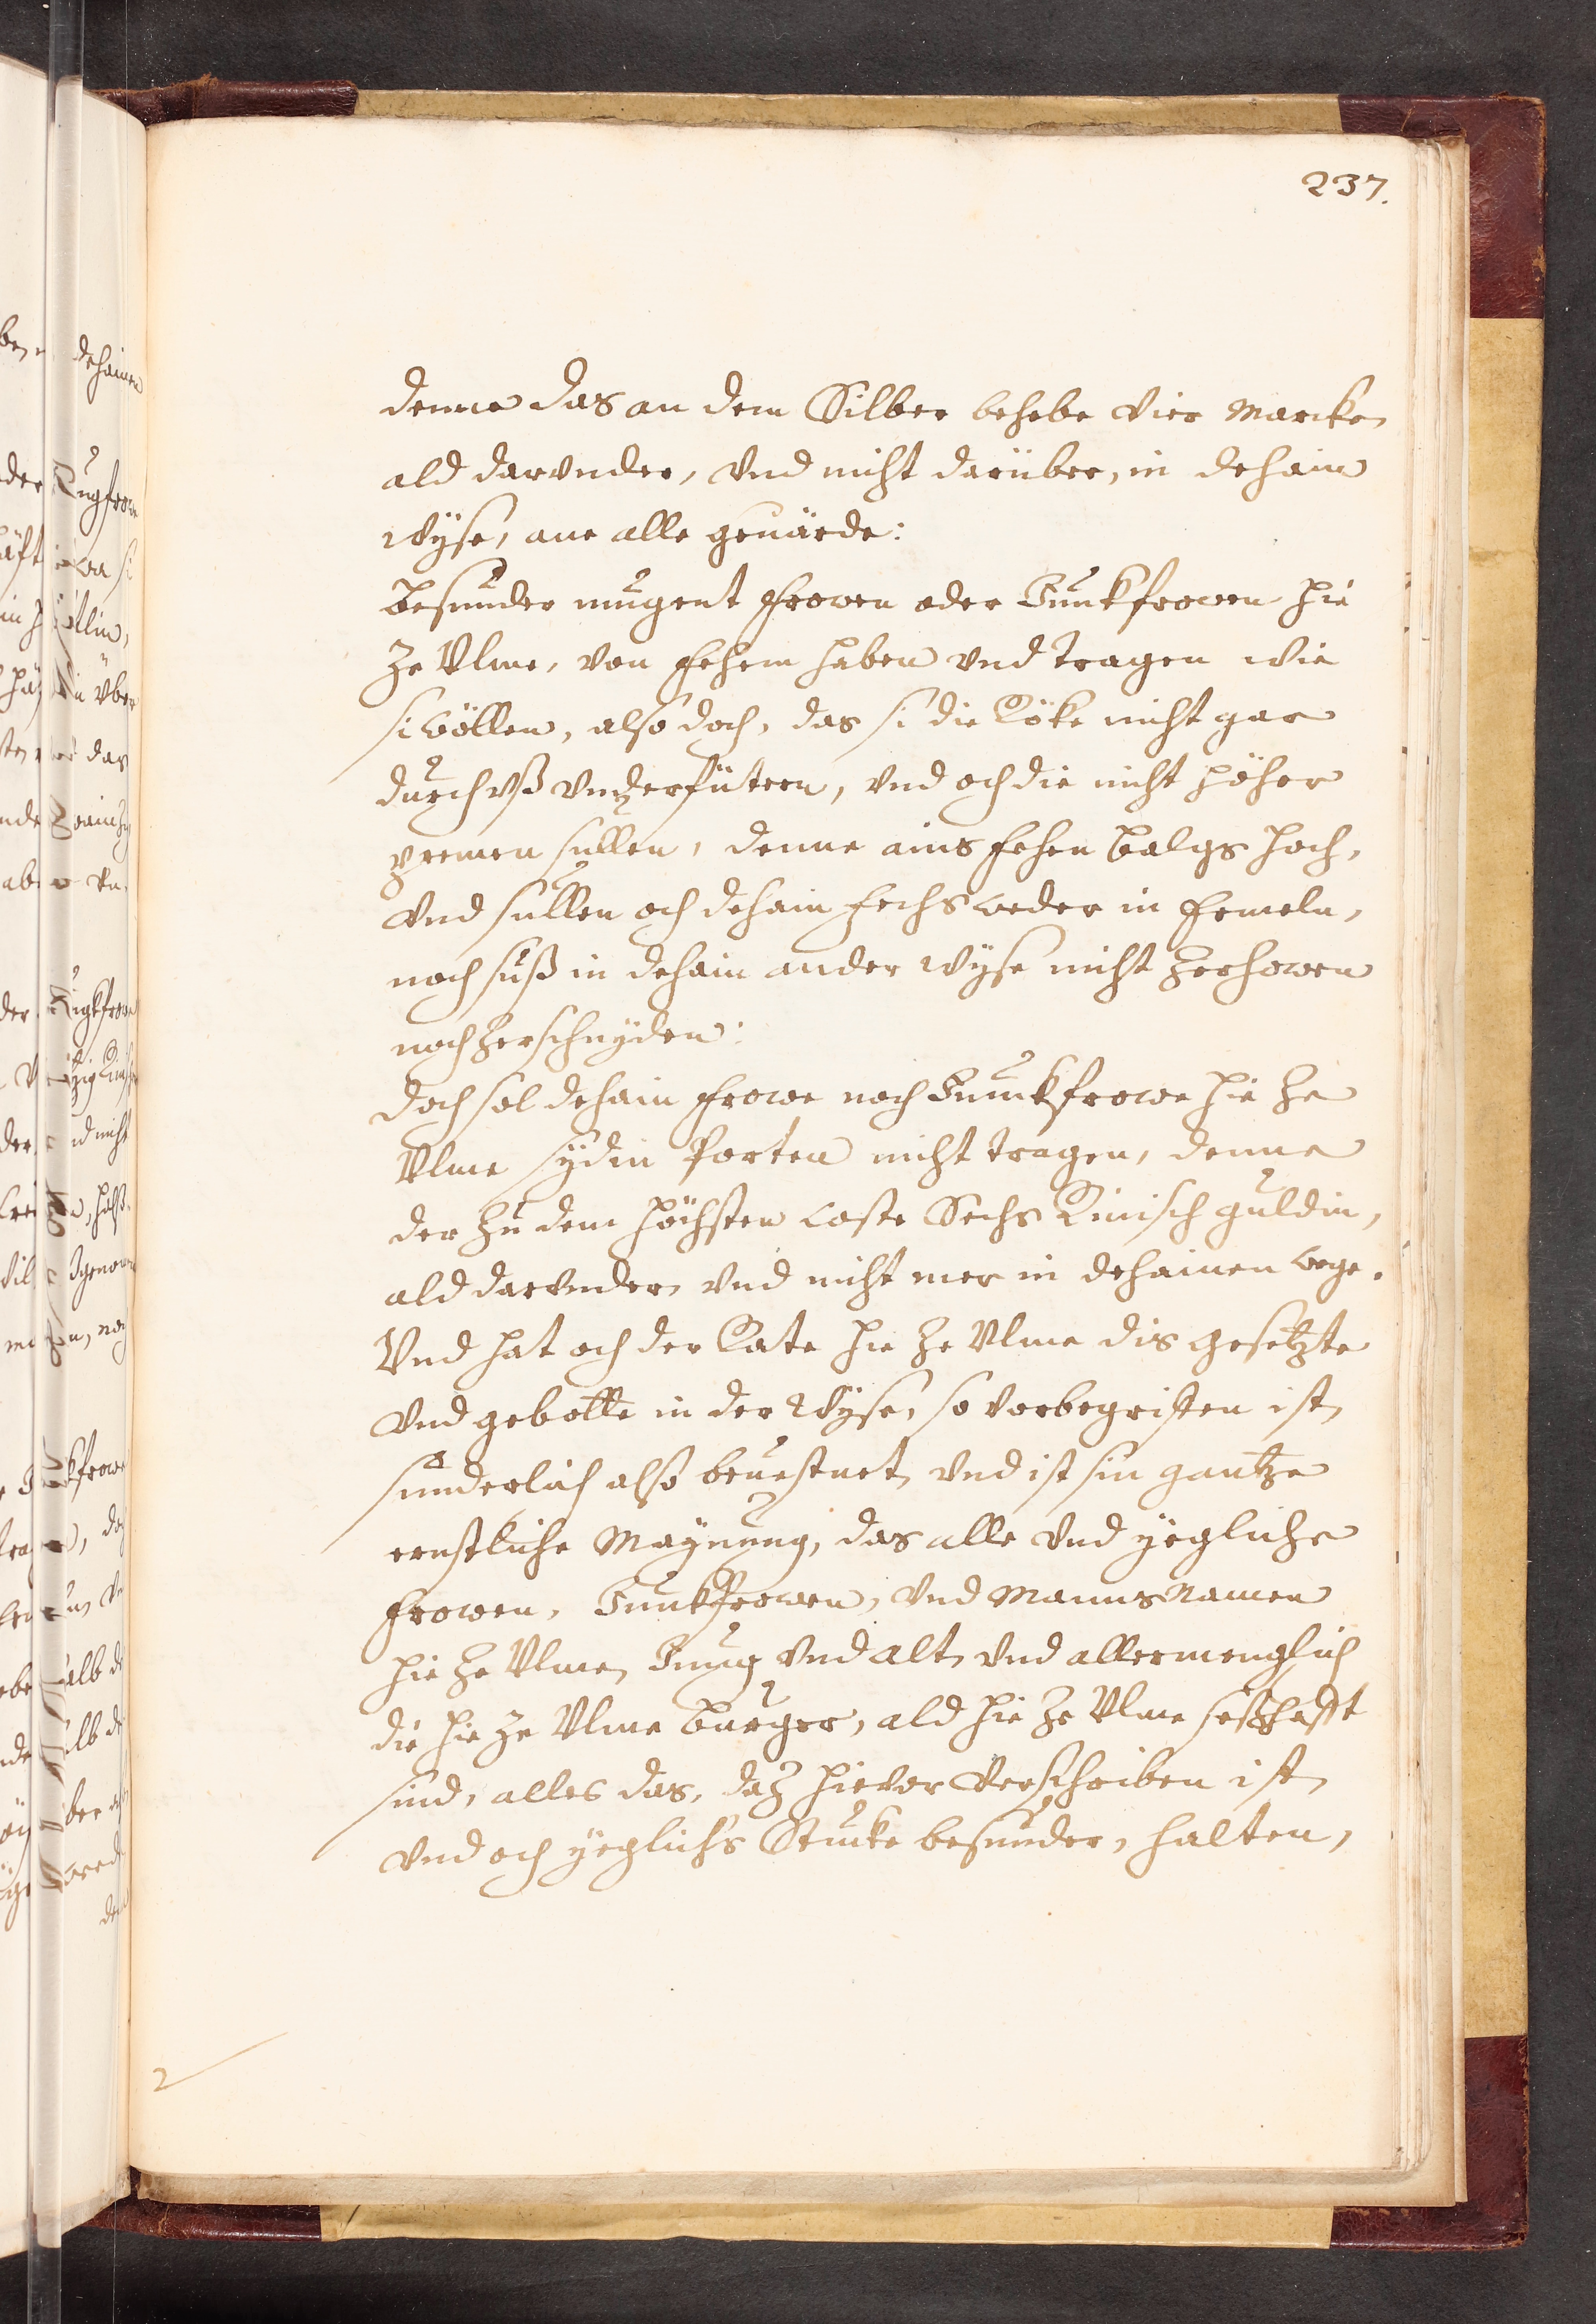 237.
denne das an dem Silber behebe vier Marcke,
ald darunder, vnd nicht darüber, in dehain
wyse, ane alle geuärde:
Besunder mugent Frowen oder Junkfrowen hie
ze Vlme, von Fehem haben vnd tragen wie
si wöllen, also doch, das si die Röke nicht gar
durch vß vnderfütern, vnd och die nicht höher
premen sullen, denne ains Fehen balgs hoch,
vnd sullen och dehain Fechs weder in Ermeln,
noch suß in dehain ander wyse nicht zerhowen
noch zerschnyden:
Doch sol dehain Frowe noch Junckfrowe hie ze
Vlme sydin Porten nicht tragen, denne
der zu dem höchsten coste Sechs Rinisch guldin,
ald darunder, vnd nicht mer in dehainen wege.
Vnd hat och der Rate hie ze Vlme dis gesetzte
vnd gebotte in der wyse, so vorbegriffen ist,
sunderlich also beuestnet, vnd ist sin gantze
ernstliche Maynung, das alle vnd yegliche
Frowen, Junkfrowen, vnd Manns Namen
hie ze Vlme, Jung vnd alt, vnd allermenglich
die hie ze Vlme burger, ald hie ze Vlme seßhafft
sind, alles das, daz hieuor verschriben ist,
vnd och yeglichs Stucke besunder, halten,